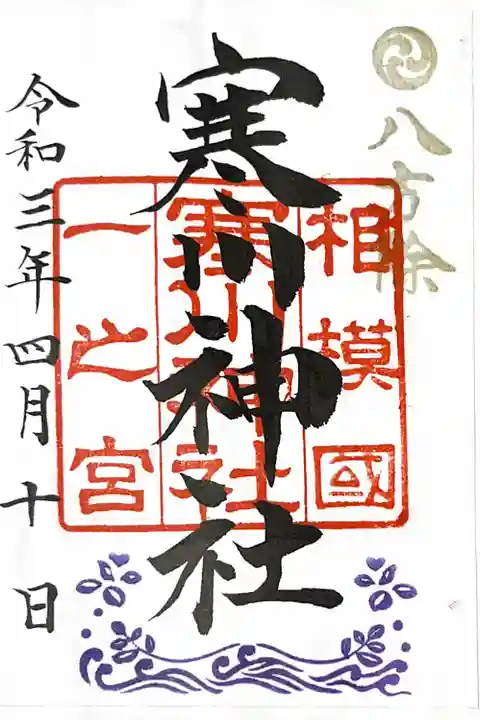 八方除
相模國
寒川神社
一之宮
寒川神社
令和三年四月十日